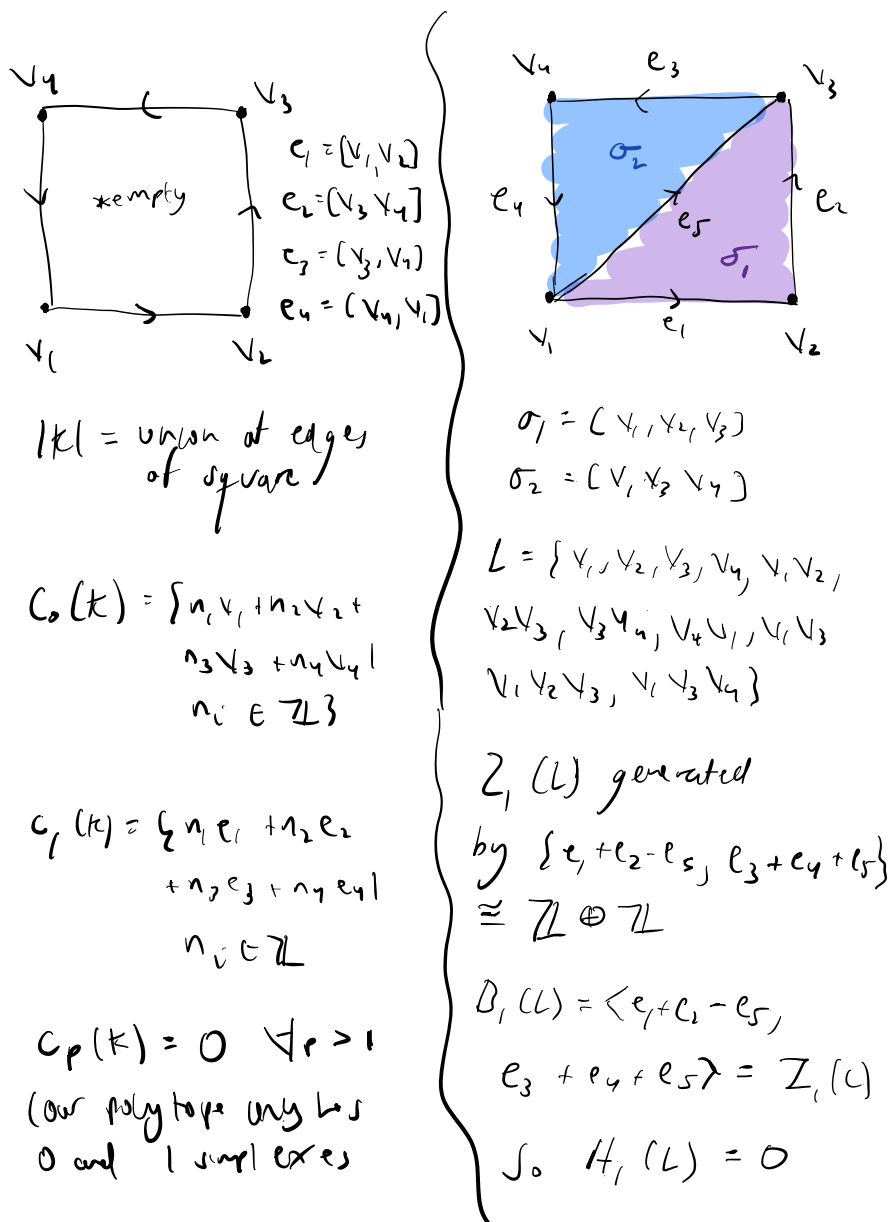 V4
V3
*empty
V1
V2
e1 = [V1, V2]
e2 = [V3 V4]
e3 = (V3, V4)
e4 = (V4, V1]
|K| = union at edges
of square
C0(K) = {n1V1 + n2V2 +
n3V3 + n4V4 |
ni ∈ ℤ}
C1(K) = {n1e1 + n2e2
+ n3e3 + n4e4 |
ni ∈ ℤ
Cp(K) = 0 ∀p > 1
(our polytope only has
0 and 1 simplexes
V4
e3
V3
σ2
e4
e5
e2
σ1
V1
e1
V2
σ1 = [V1, V2, V3]
σ2 = [V1 V3 V4]
L = {V1, V2, V3, V4, V1V2,
V2V3, V3V4, V4V1, V1V3
V1V2V3, V1V3V4}
Z1(L) generated
by {e1 + e2 - e5, e3 + e4 + e5}
≅ ℤ ⊕ ℤ
B1(L) = <e1 + e2 - e5,
e3 + e4 + e5> = Z1(L)
So H1(L) = 0